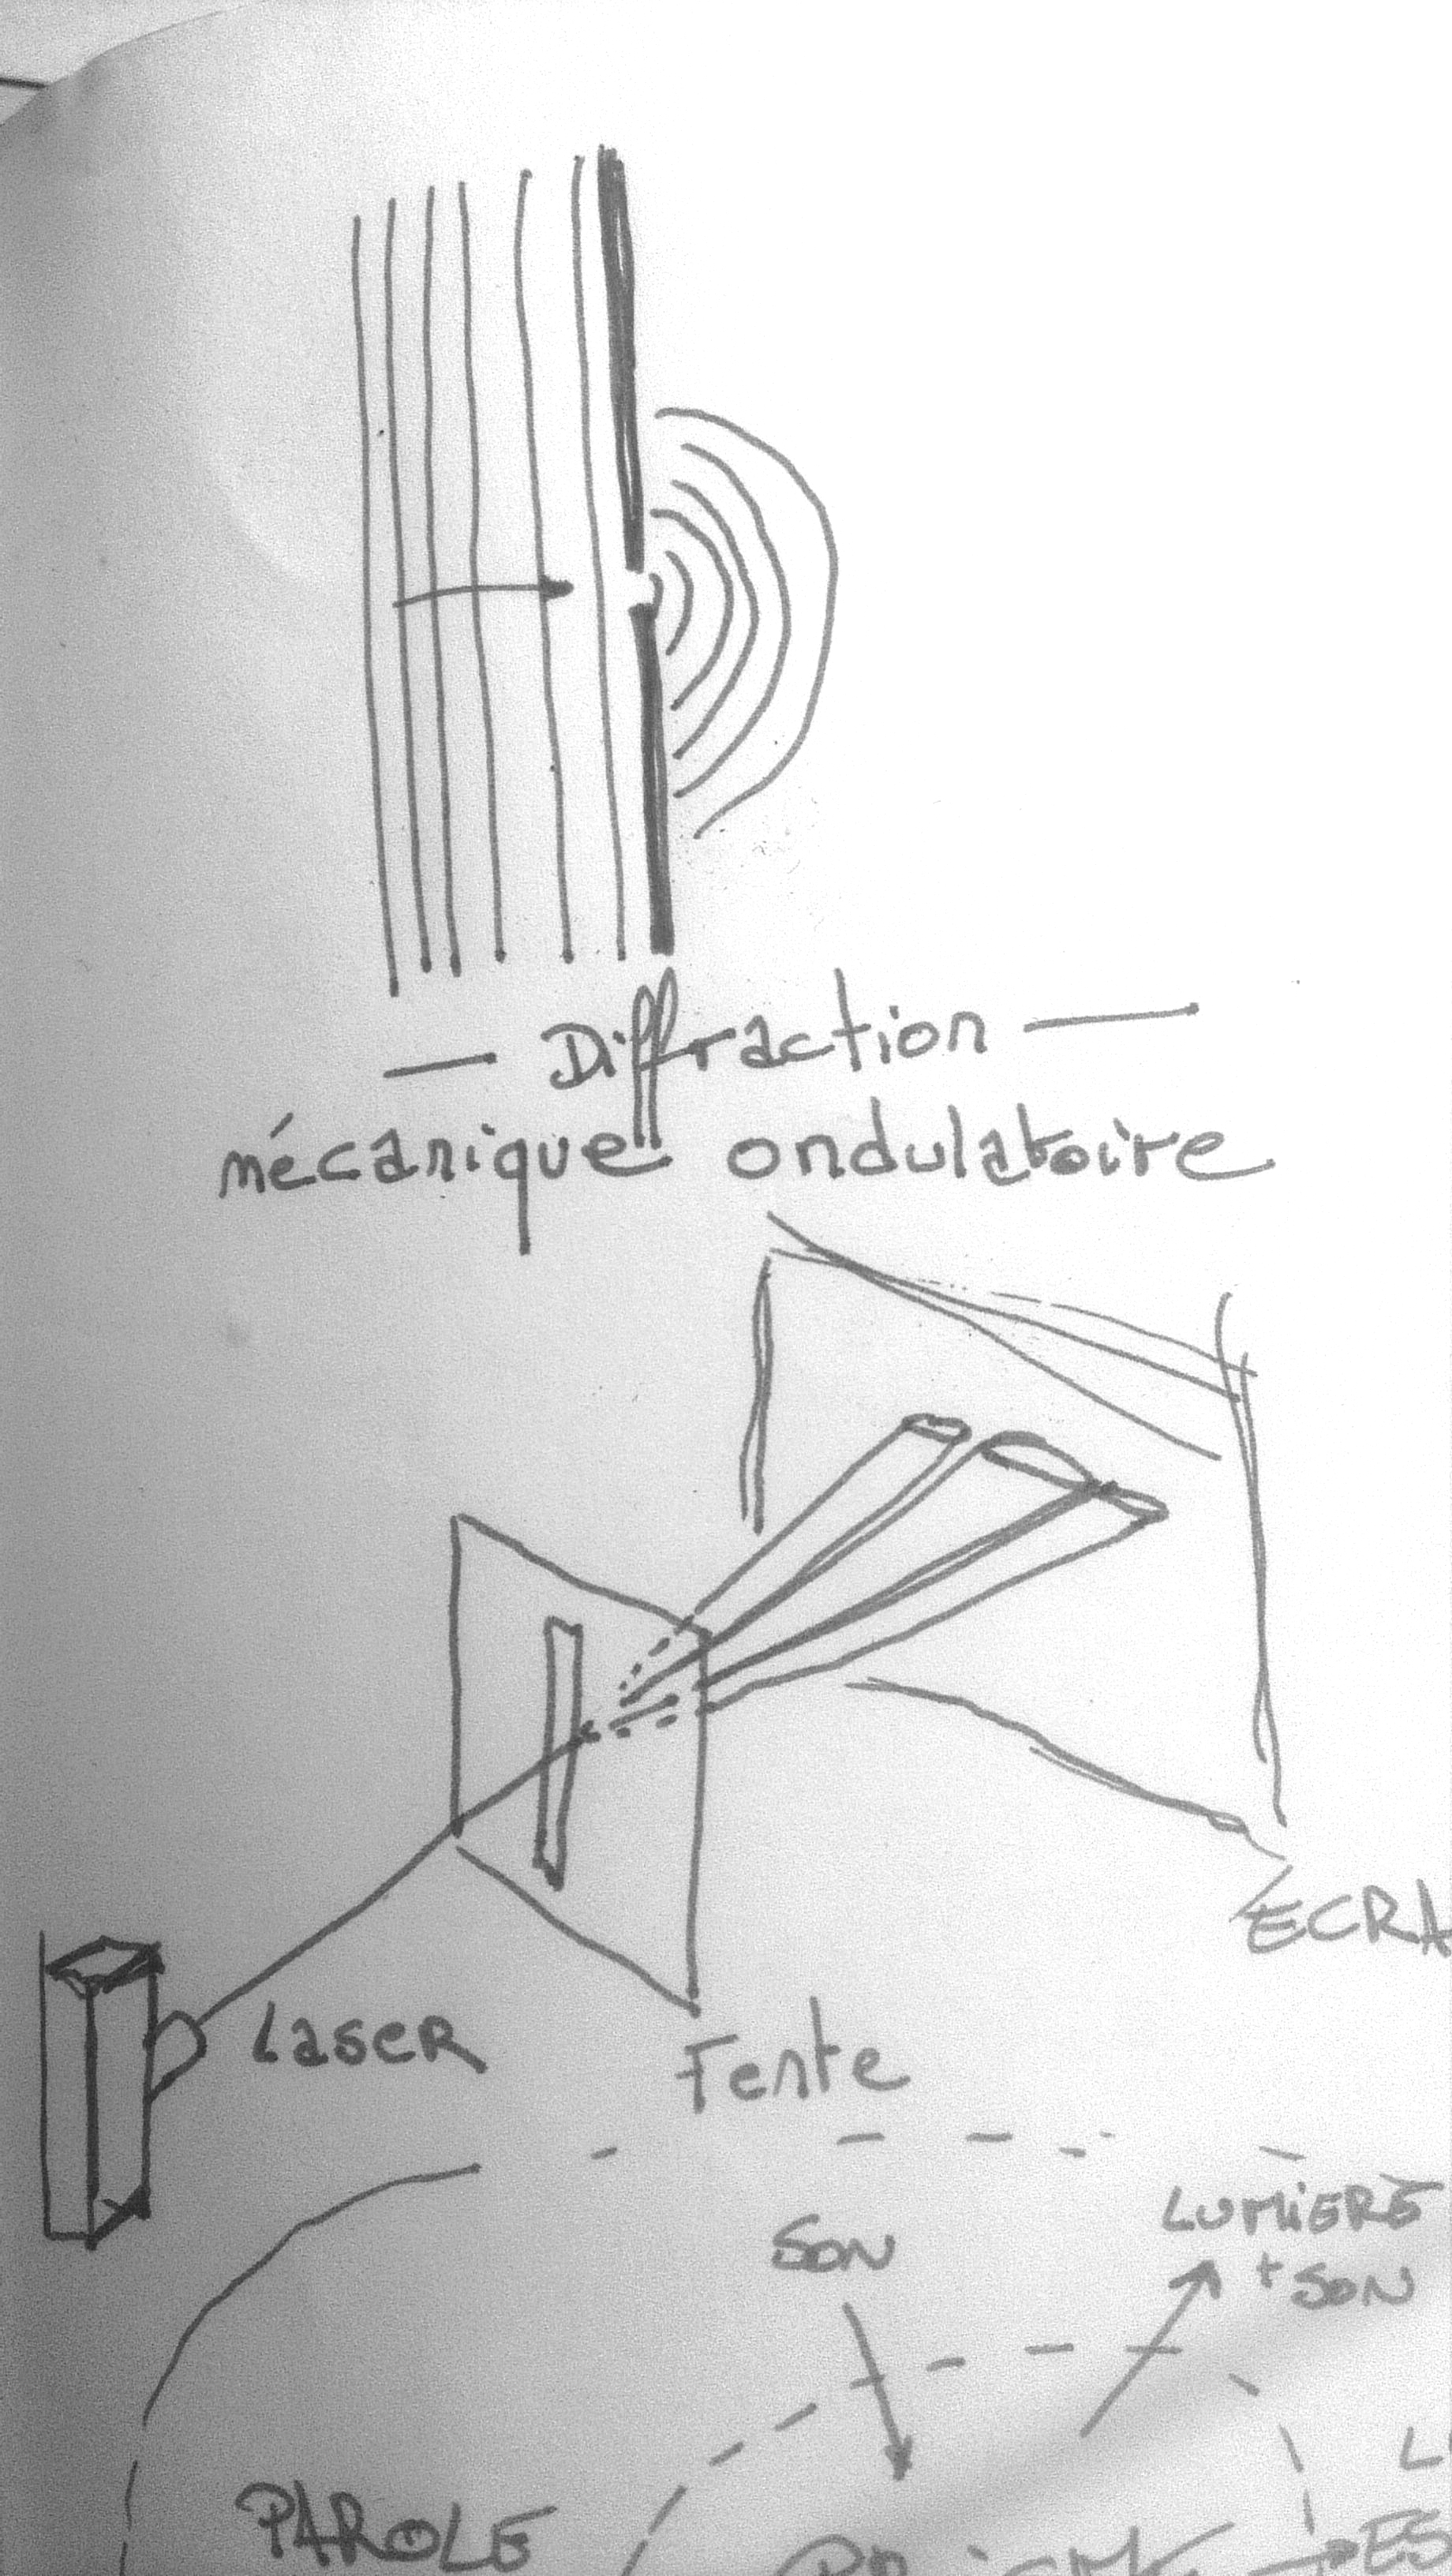 — Diffraction —
mécanique ondulatoire
ECRA
Laser
Fente
SON
LUMIERE
+ SON
PAROLE